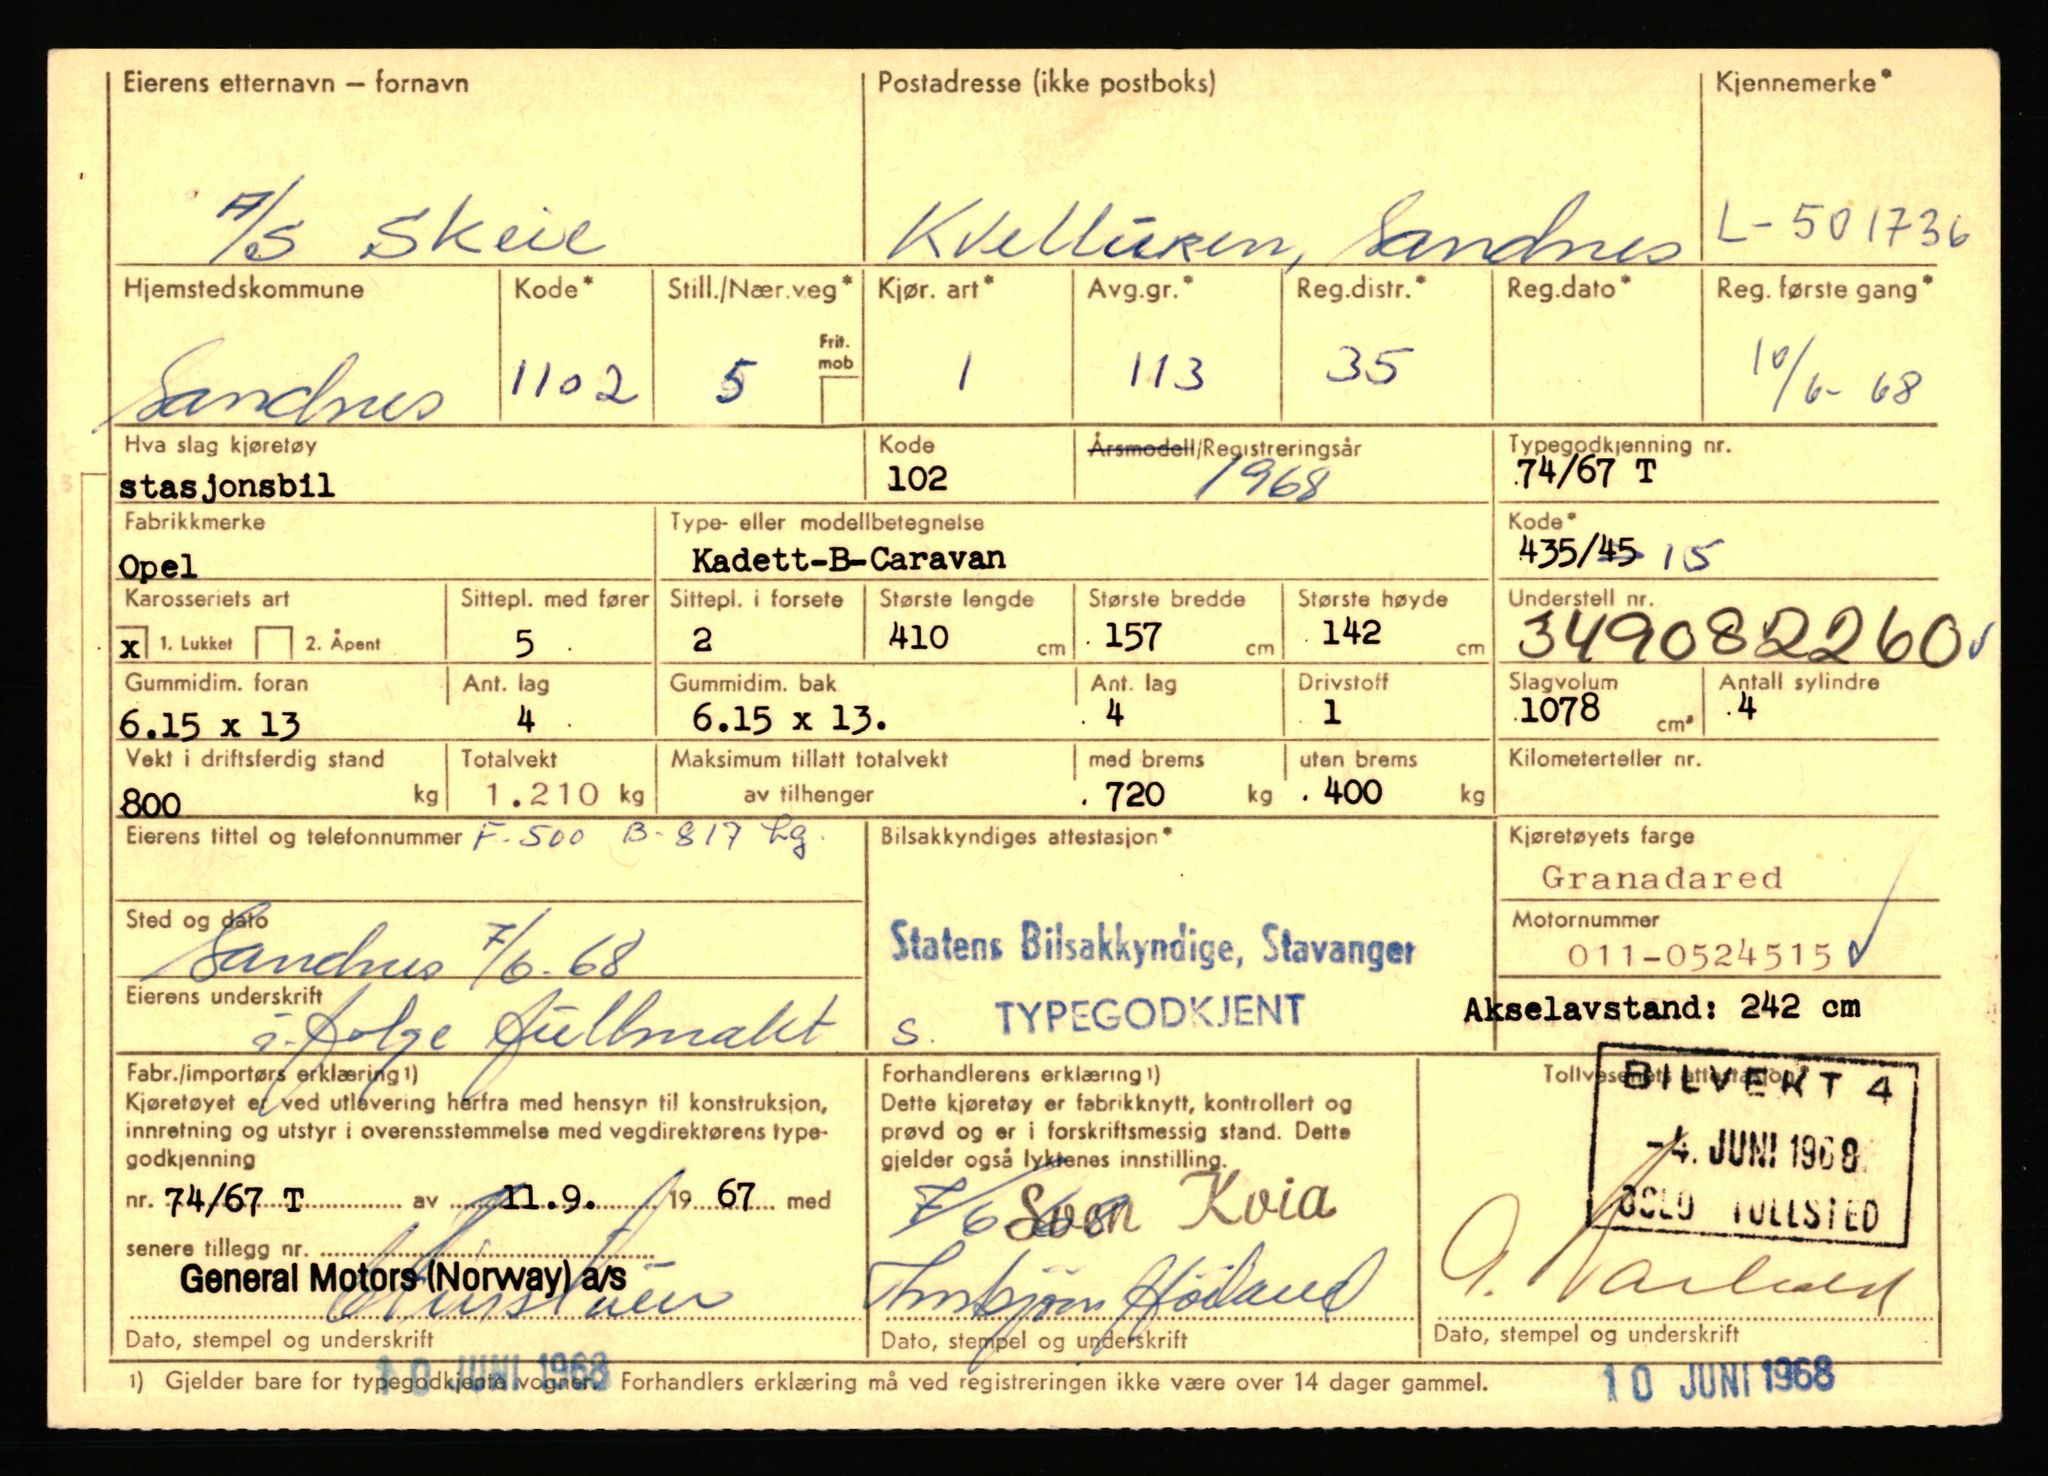 Eierens etternavn – fornavn   Postadresse (ikke postboks)   Kjennemerke*
A/S Skeie   Kvelluren, Sandnes   L-501736
Hjemstedskommune   Kode*   Still./Nær.veg*   Kjør. art*   Avg.gr.*   Reg.distr.*   Reg.dato*   Reg. første gang*
Frit. mob
Sandnes   1102   5   1   113   35   10/6-68
Hva slag kjøretøy   Kode   Årsmodell/Registreringsår   Typegodkjenning nr.
stasjonsbil   102   1968   74/67 T
Fabrikkmerke   Type- eller modellbetegnelse   Kode*
Opel   Kadett-B-Caravan   435/45 15
Karosseriets art   Sittepl. med fører   Sittepl. i forsete   Største lengde   Største bredde   Største høyde   Understell nr.
x 1. Lukket   2. Åpent   5   2   410 cm   157 cm   142 cm   349082260
Gummidim. foran   Ant. lag   Gummidim. bak   Ant. lag   Drivstoff   Slagvolum   Antall sylindre
6.15 x 13   4   6.15 x 13.   4   1   1078 cm³   4
Vekt i driftsferdig stand   Totalvekt   Maksimum tillatt totalvekt   med brems   uten brems   Kilometerteller nr.
800 kg   1.210 kg   av tilhenger   720 kg   400 kg
Eierens tittel og telefonnummer F-500 B-817 kg.   Bilsakkyndiges attestasjon*   Kjøretøyets farge
Granadared
Sted og dato   Motornummer
Sandnes 7/6-68   Statens Bilsakkyndige, Stavanger   011-0524515
Eierens underskrift   Akselavstand: 242 cm
i følge fullmakt   S. TYPEGODKJENT
Fabr./importørs erklæring 1)   Forhandlerens erklæring 1)   Tollvesenets attestasjon*
BILVEKT 4
Kjøretøyet er ved utlevering herfra med hensyn til konstruksjon,   Dette kjøretøy er fabrikknytt, kontrollert og
innretning og utstyr i overensstemmelse med vegdirektørens type-   prøvd og er i forskriftsmessig stand. Dette
-4. JUNI 1968
godkjenning   gjelder også lyktenes innstilling.
nr. 74/67 T av 11.9. 1967 med   7/6 68 Sven Kvia   OSLO TOLLSTED
senere tillegg nr.
General Motors (Norway) a/s   Torbjørn Høiland
Dato, stempel og underskrift   Dato, stempel og underskrift   Dato, stempel og underskrift
10 JUNI 1968   10 JUNI 1968
1) Gjelder bare for typegodkjente vogner. Forhandlers erklæring må ved registreringen ikke være over 14 dager gammel.